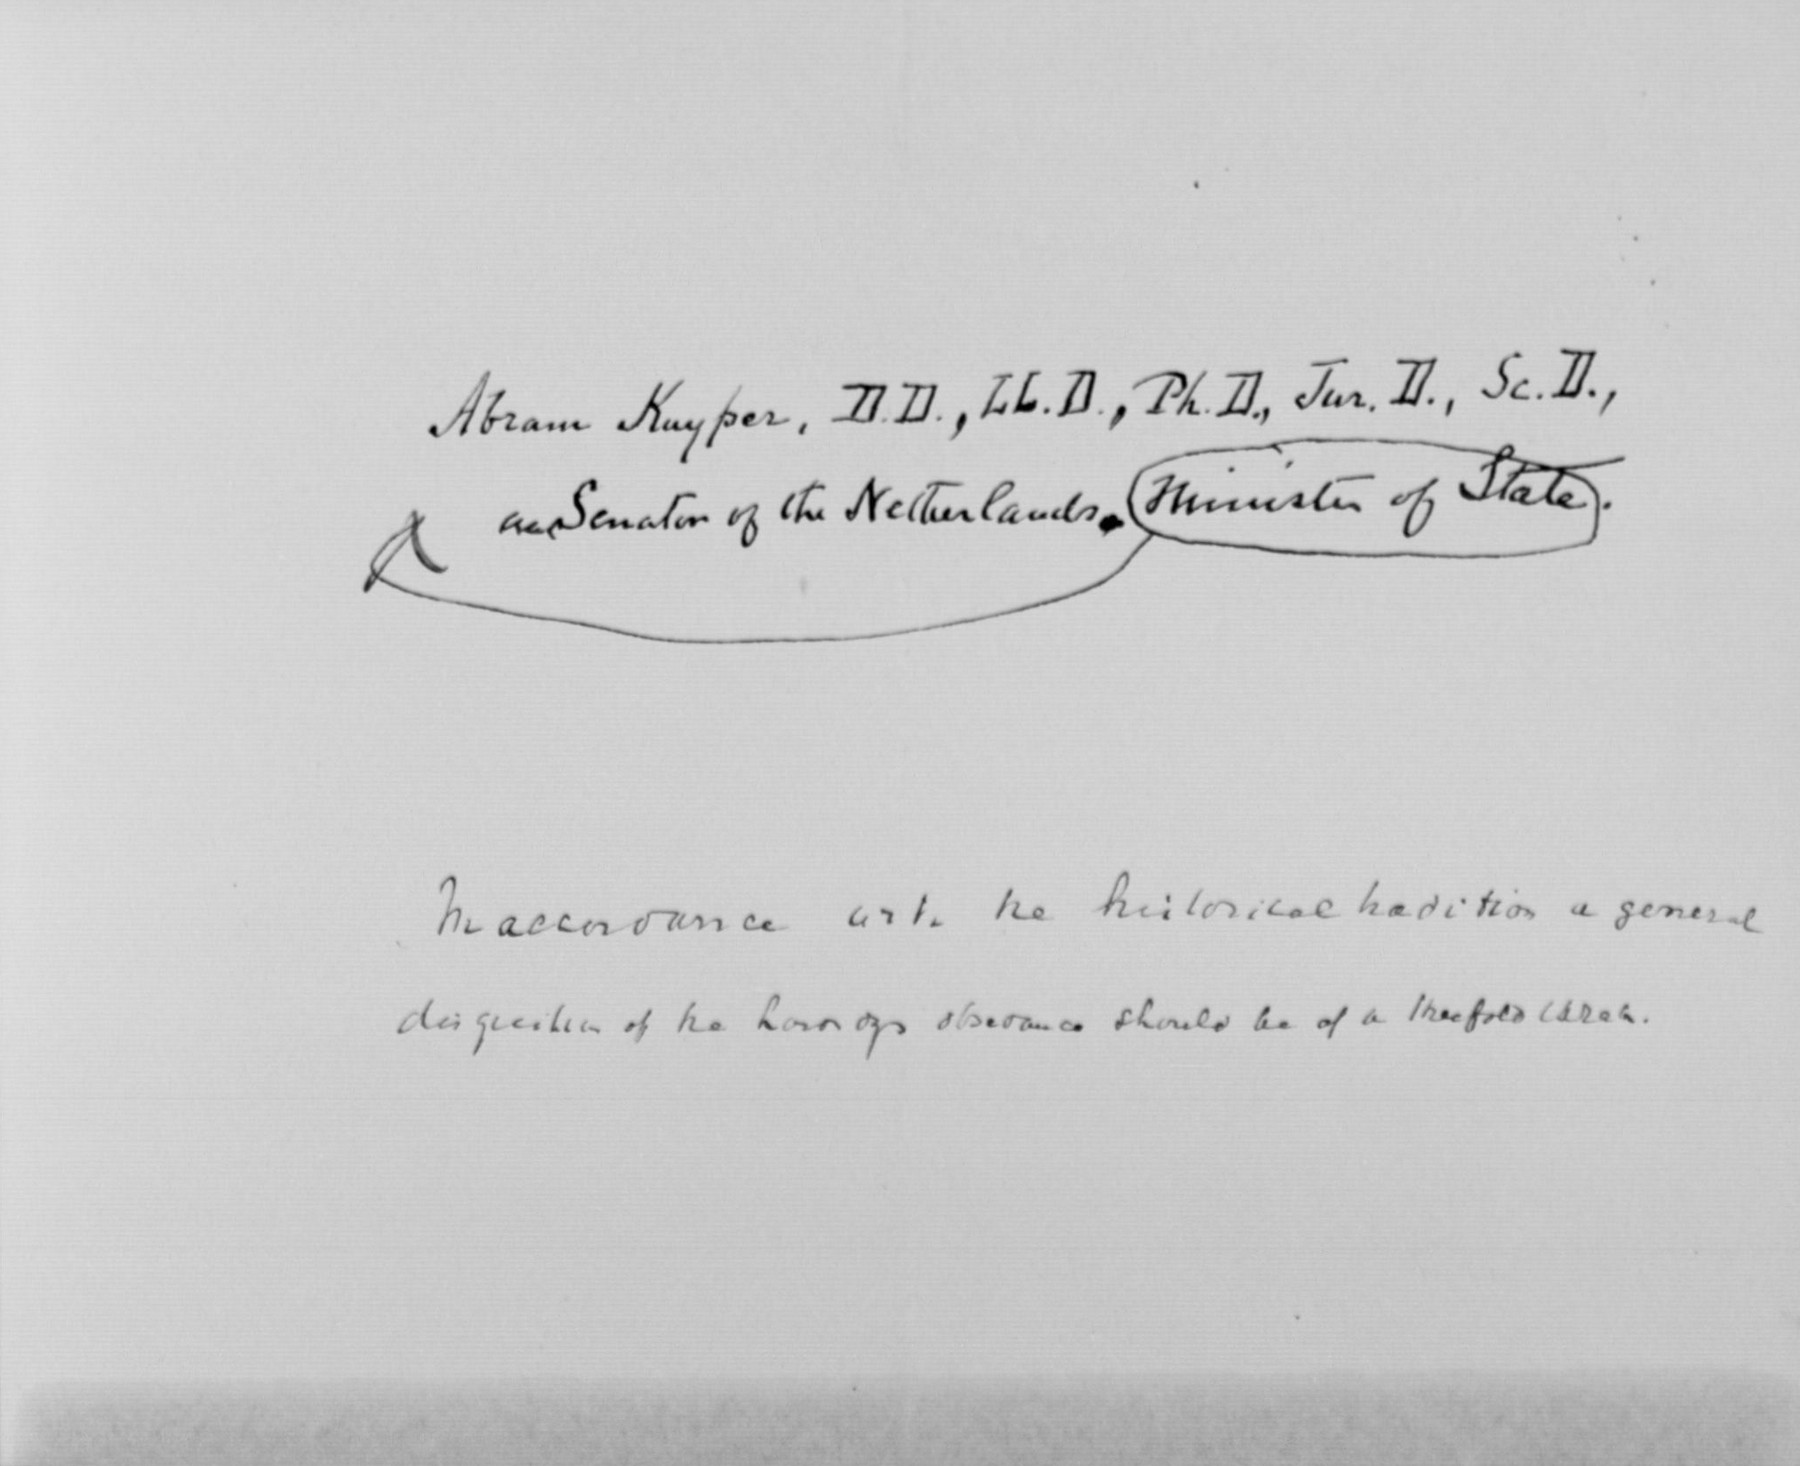 Abram Kuyper, D.D., LL.D., Ph.D., Jur. D., Sc. D.,
Senator of the Netherlands. Minister of State.
In accordance with the historical tradition a general
of the observance should be of a threefold